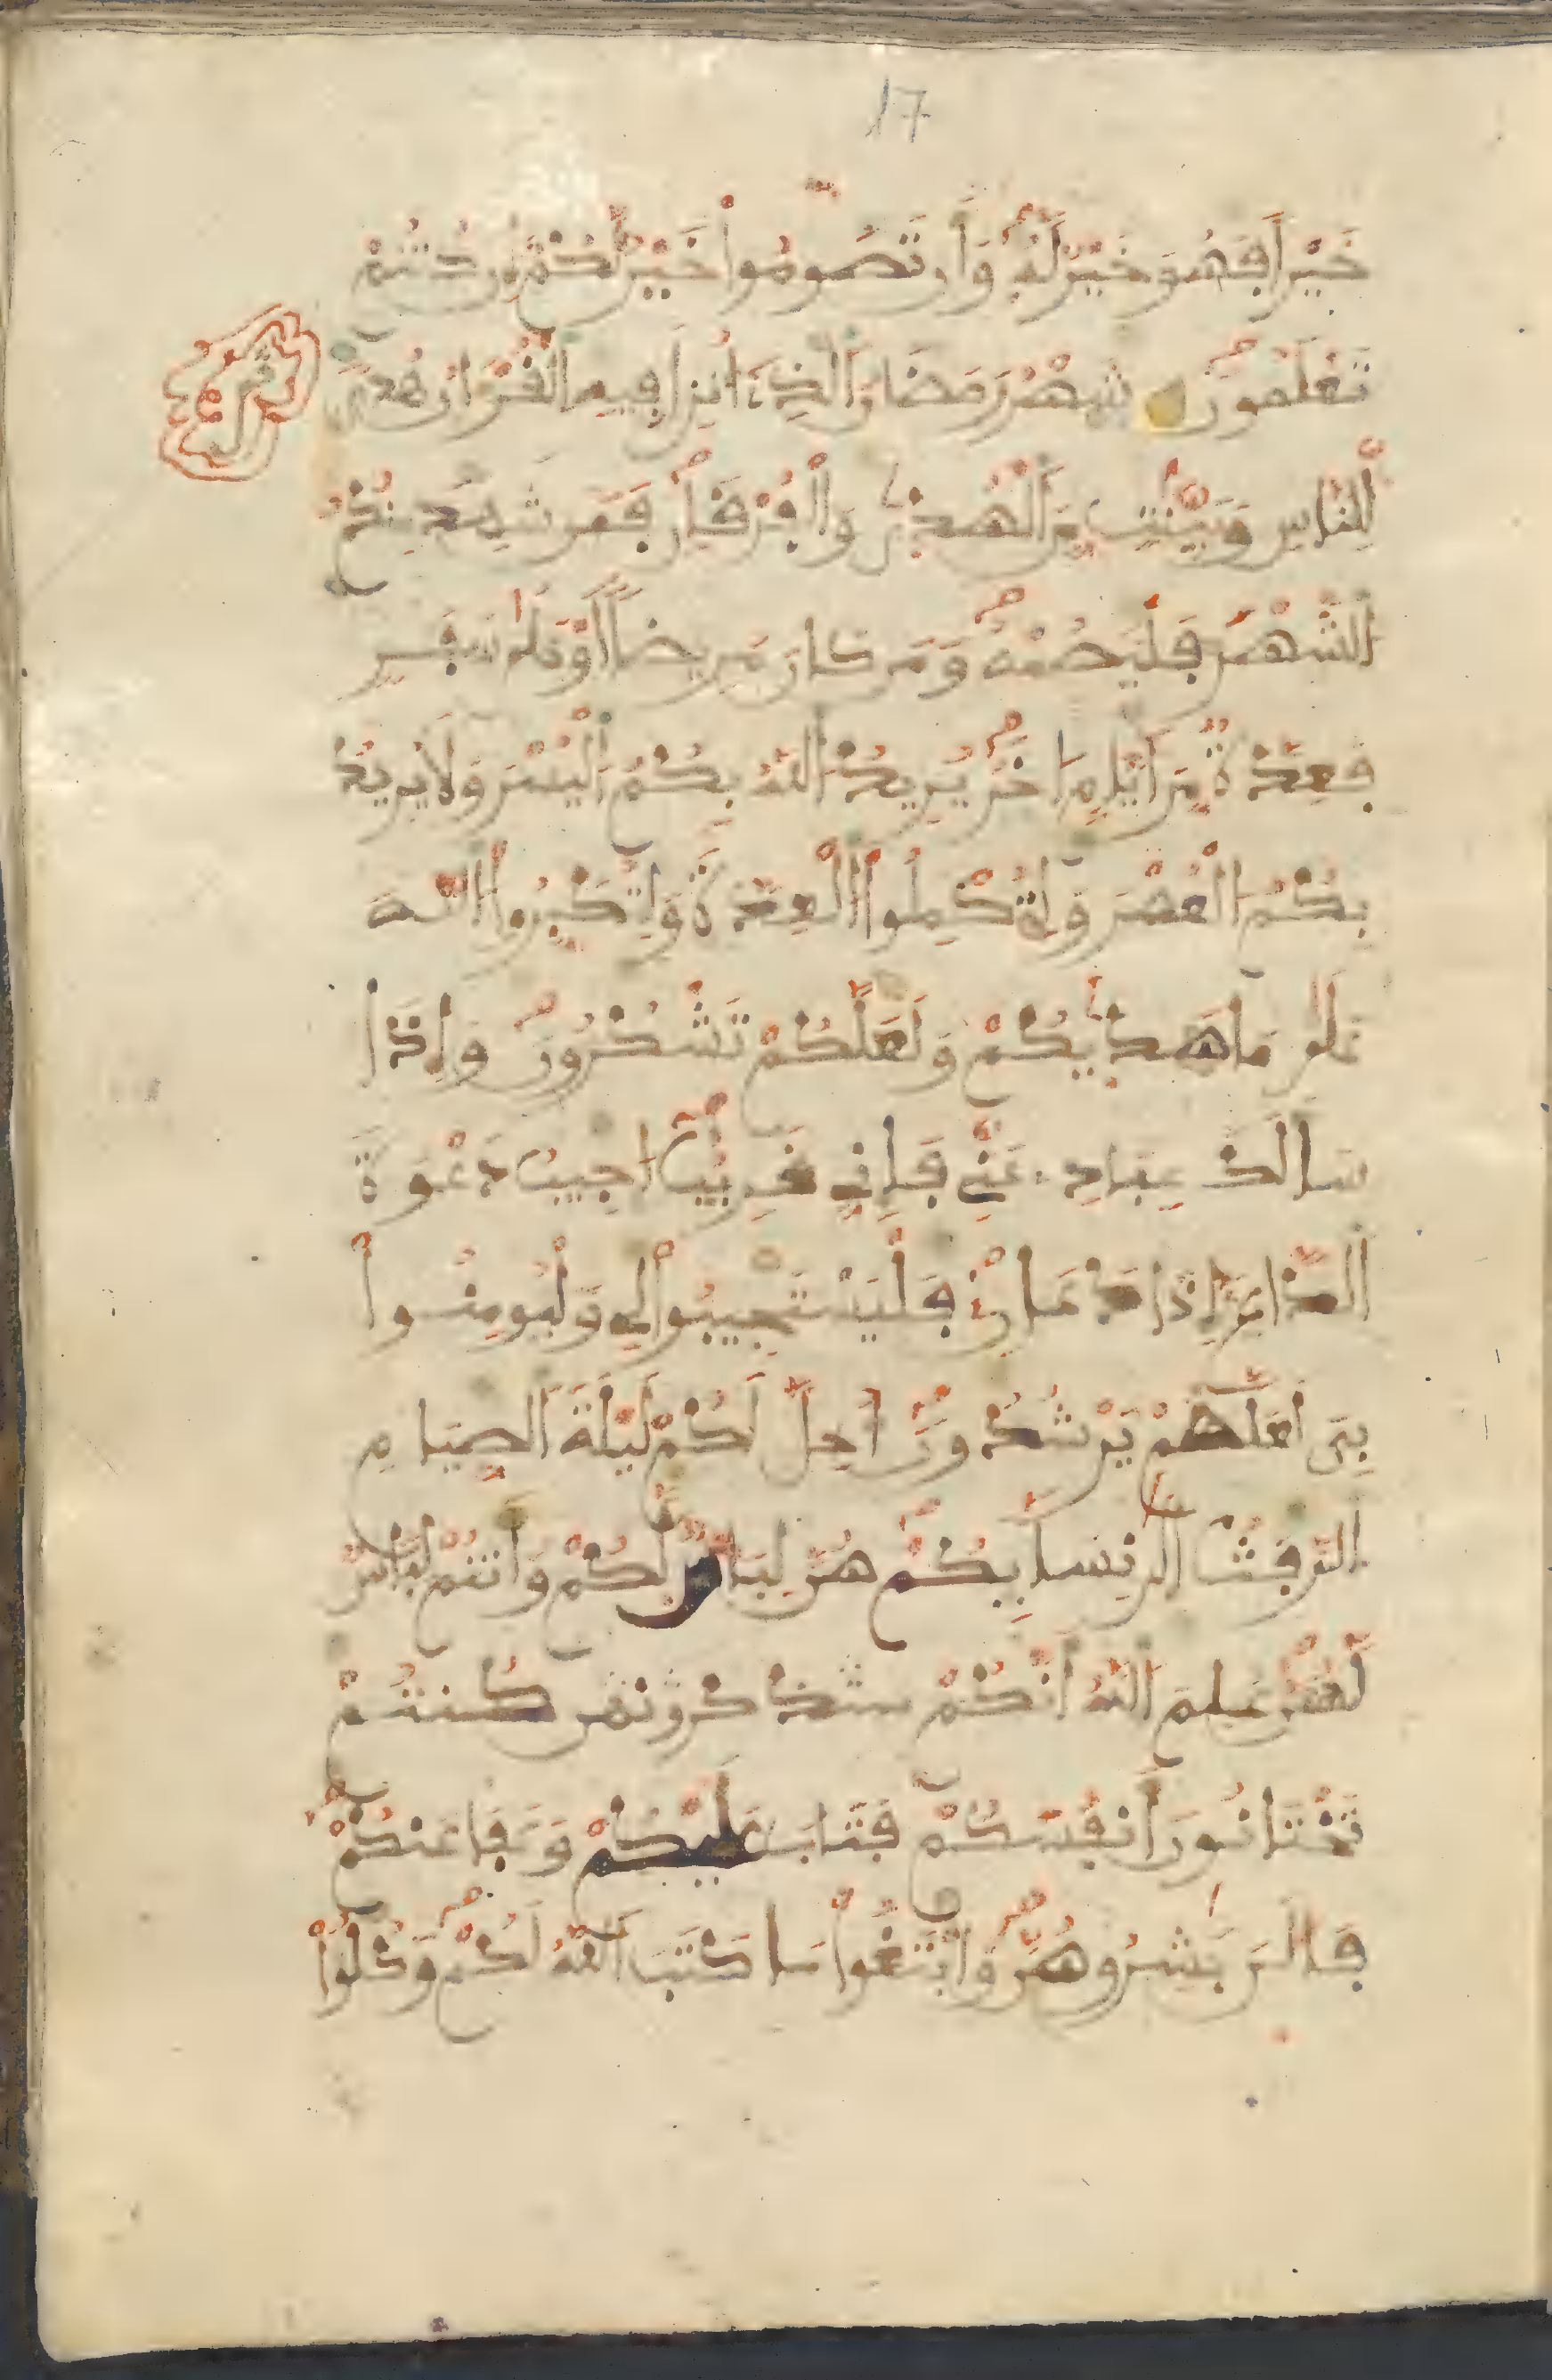 17
خَيْراً فَهُوَ خَيْرٌ لَّهُۥ وَأَن تَصُومُواْ خَيْرٌ لَّكُمْۥ إِن كُنتُمْ
تَعْلَمُونَ شَهْرُ رَمَضَانَ اَلذِےٓ أُنزِلَ فِيهِ اِلْقُرْءَانُ هُدىً
لِّلنَّاسِ وَبَيِّنَٰتٍ مِّنَ اَلْهُدۭىٰ وَالْفُرْقَانِ فَمَن شَهِدَ مِنكُمُ
اُلشَّهْرَ فَلْيَصُمْهُ وَمَن كَانَ مَرِيضاً أَوْ عَلَىٰ سَفَرٍ
فَعِدَّةٌ مِّنَ اَيَّامٍ اُخَرَ يُرِيدُ اُللَّهُ بِكُمُ اُلْيُسْرَ وَلَا يُرِيدُ
بِكُمُ اُلْعُسْرَ وَلِتُكْمِلُواْ اُلْعِدَّةَ وَلِتُكَبِّرُواْ اُللَّهَ
عَلَىٰ مَا هَدۭىٰكُمْ وَلَعَلَّكُمْ تَشْكُرُونَ وَإِذَا
سَأَلَكَ عِبَادِے عَنِّے فَإِنِّے قَرِيبٌ اجِيبُ دَعْوَةَ
اَلدَّاعِۦ إِذَا دَعَانِۦ فَلْيَسْتَجِيبُواْ لِے وَلْيُومِنُواْ
بِےَ لَعَلَّهُمْ يَرْشُدُونَ أُحِلَّ لَكُمْ لَيْلَةَ اَلصِّيَامِ
اِلرَّفَثُ إِلَىٰ نِسَآئِكُمْ هُنَّ لِبَاسٌ لَّكُمْ وَأَنتُمْ لِبَاسٌ
لَّهُنَّ عَلِمَ اَللَّهُ أَنَّكُمْ كُنتُمْ
تَخْتَانُونَ أَنفُسَكُمْ فَتَابَ عَلَيْكُمْ وَعَفَا عَنكُمْ
فَالَٰنَ بَٰشِرُوهُنَّ وَابْتَغُواْ مَا كَتَبَ اَللَّهُ لَكُمْ وَكُلُواْ